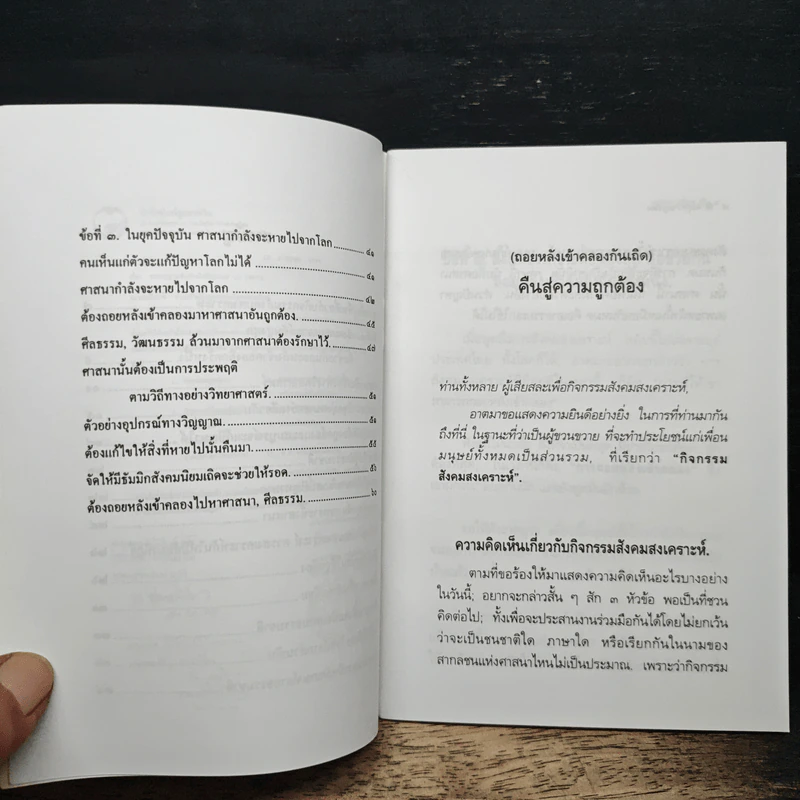 ข้อที่ ๓. ในยุคปัจจุบัน ศาสนากำลังจะหายไปจากโลก ๔๑
คนเห็นแก่ตัวจะแก้ปัญหาโลกไม่ได้ ๔๑
ศาสนากำลังจะหายไปจากโลก ๔๒
ต้องถอยหลังเข้าคลองมาหาศาสนาอันถูกต้อง. ๔๕
ศีลธรรม, วัฒนธรรม ล้วนมาจากศาสนาต้องรักษาไว้. ๔๗
ศาสนานั้นต้องเป็นการประพฤติ
ตามวิถีทางอย่างวิทยาศาสตร์. ๕๑
ตัวอย่างอุปกรณ์ทางวิญญาณ. ๕๑
ต้องแก้ไขให้สิ่งที่หายไปนั้นคืนมา. ๕๕
จัดให้มีธัมมิกสังคมนิยมเถิดจะช่วยให้รอด. ๕๖
ต้องถอยหลังเข้าคลองไปหาศาสนา, ศีลธรรม. ๖๐
(ถอยหลังเข้าคลองกันเถิด)
คืนสู่ความถูกต้อง
ท่านทั้งหลาย ผู้เสียสละเพื่อกิจกรรมสังคมสงเคราะห์,
อาตมาขอแสดงความยินดีอย่างยิ่ง ในการที่ท่านมากัน
ถึงที่นี่ ในฐานะที่ว่าเป็นผู้ขวนขวาย ที่จะทำประโยชน์แก่เพื่อน
มนุษย์ทั้งหมดเป็นส่วนรวม, ที่เรียกว่า “กิจกรรม
สังคมสงเคราะห์”.
ความคิดเห็นเกี่ยวกับกิจกรรมสังคมสงเคราะห์.
ตามที่ขอร้องให้มาแสดงความคิดเห็นอะไรบางอย่าง
ในวันนี้; อยากจะกล่าวสั้น ๆ สัก ๓ หัวข้อ พอเป็นที่ชวน
คิดต่อไป; ทั้งเพื่อจะประสานงานร่วมมือกันได้โดยไม่ยกเว้น
ว่าจะเป็นชนชาติใด ภาษาใด หรือเรียกกันในนามของ
สากลชนแห่งศาสนาไหนไม่เป็นประมาณ. เพราะว่ากิจกรรม